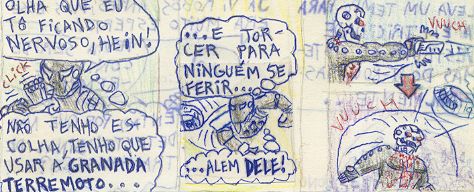 OLHA QUE EU
TÔ FICANDO
NERVOSO, HEIN!
CLICK
NÃO TENHO ES-
COLHA, TENHO QUE
USAR A GRANADA
TERREMOTO...
...E TOR-
CER PARA
NINGUÉM SE
FERIR...
...ALEM DELE!
VUUCH
VUUCH